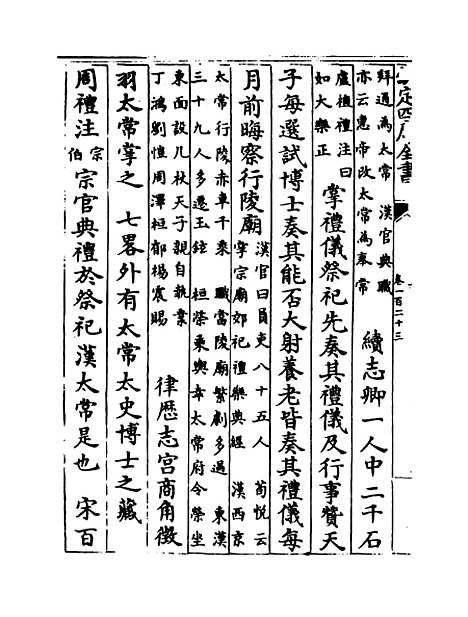 欽定四庫全書
卷一百二十三
拜通為太常 漢官典職
亦云惠帝改太常為奉常
續志卿一人中二千石
盧植禮注曰
如大樂正
掌禮儀祭祀先奏其禮儀及行事贊天
子每選試博士奏其能否大射養老皆奏其禮儀每
月前晦察行陵廟
漢官曰員吏八十五人 荀悅云
掌宗廟郊祀禮樂典經 漢西京
太常行陵赤車千乘 職當陵廟繁劇多過 東漢
三十九人多遷玉鉉 桓榮乘輿幸太常府令榮坐
東面設几杖天子親自執業
丁鴻劉愷周澤桓郁楊震賜
律歷志宮商角徴
羽太常掌之 七畧外有太常太史博士之藏
周禮注
宗
伯
宗官典禮於祭祀漢太常是也 宋百